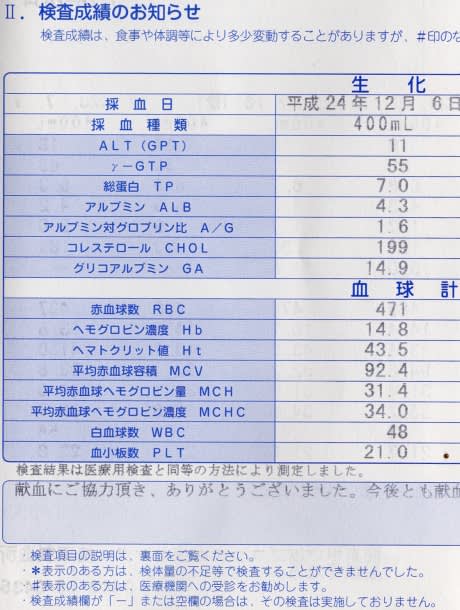 Ⅱ. 検査成績のお知らせ
検査成績は、食事や体調等により多少変動することがありますが、#印のな
生 化
採 血 日 平成24年12月 6日
採 血 種 類 400mL
ALT (GPT) 11
γ-GTP 55
総蛋白 TP 7.0
アルブミン ALB 4.3
アルブミン対グロブリン比 A/G 1.6
コレステロール CHOL 199
グリコアルブミン GA 14.9
血 球 計
赤血球数 RBC 471
ヘモグロビン濃度 Hb 14.8
ヘマトクリット値 Ht 43.5
平均赤血球容積 MCV 92.4
平均赤血球ヘモグロビン量 MCH 31.4
平均赤血球ヘモグロビン濃度 MCHC 34.0
白血球数 WBC 48
血小板数 PLT 21.0
検査結果は医療用検査と同等の方法により測定しました。
献血にご協力頂き、ありがとうございました。今後とも献血
・検査項目の説明は、裏面をご覧ください。
・*表示のある方は、検体量の不足等で検査することができませんでした。
・#表示のある方は、医療機関への受診をお勧めします。
・検査成績欄が「-」または空欄の場合は、その検査は実施しておりません。